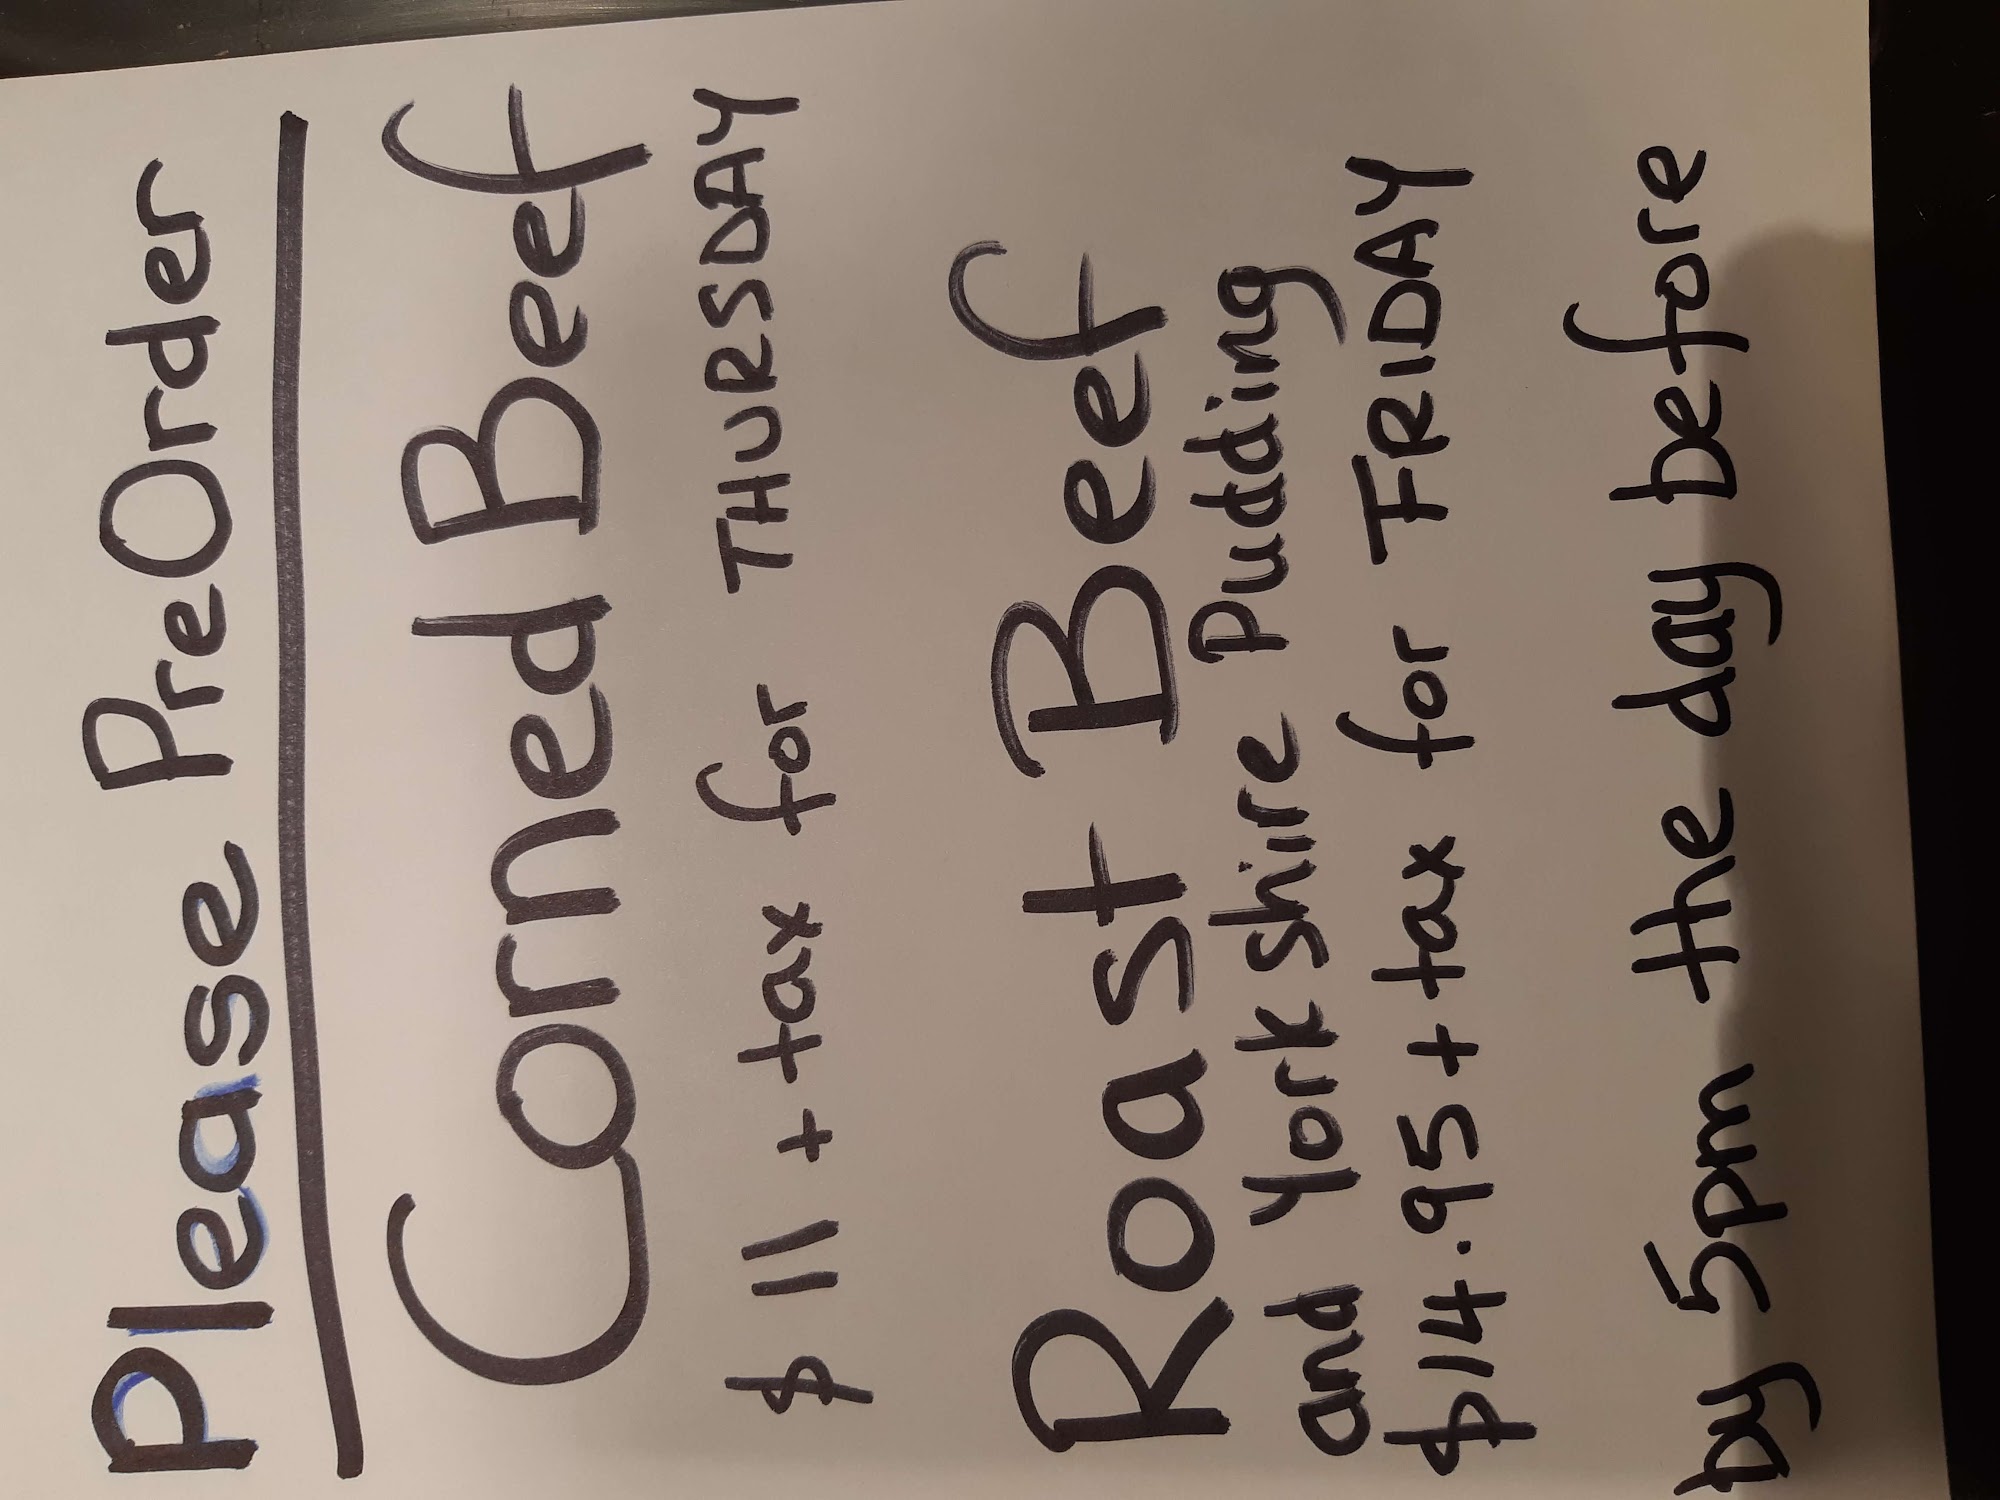 Please PreOrder
Corned Beef
$11 + tax for THURSDAY
Roast Beef
and Yorkshire Pudding
$14.95 + tax for FRIDAY
by 5pm the day before